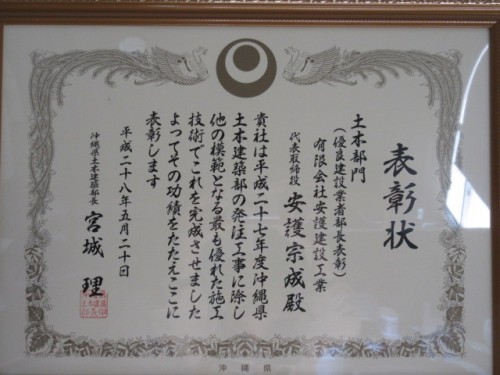 表彰状
土木部門
（優良建設業者部長表彰）
有限会社安護建設工業
代表取締役 安護宗成殿
貴社は平成二十七年度沖縄県
土木建築部の発注工事に際し
他の模範となる最も優れた施工
技術でこれを完成させました
よってその功績をたたえここに
表彰します
平成二十八年五月二十日
沖縄県土木建築部長 宮城 理
沖縄県